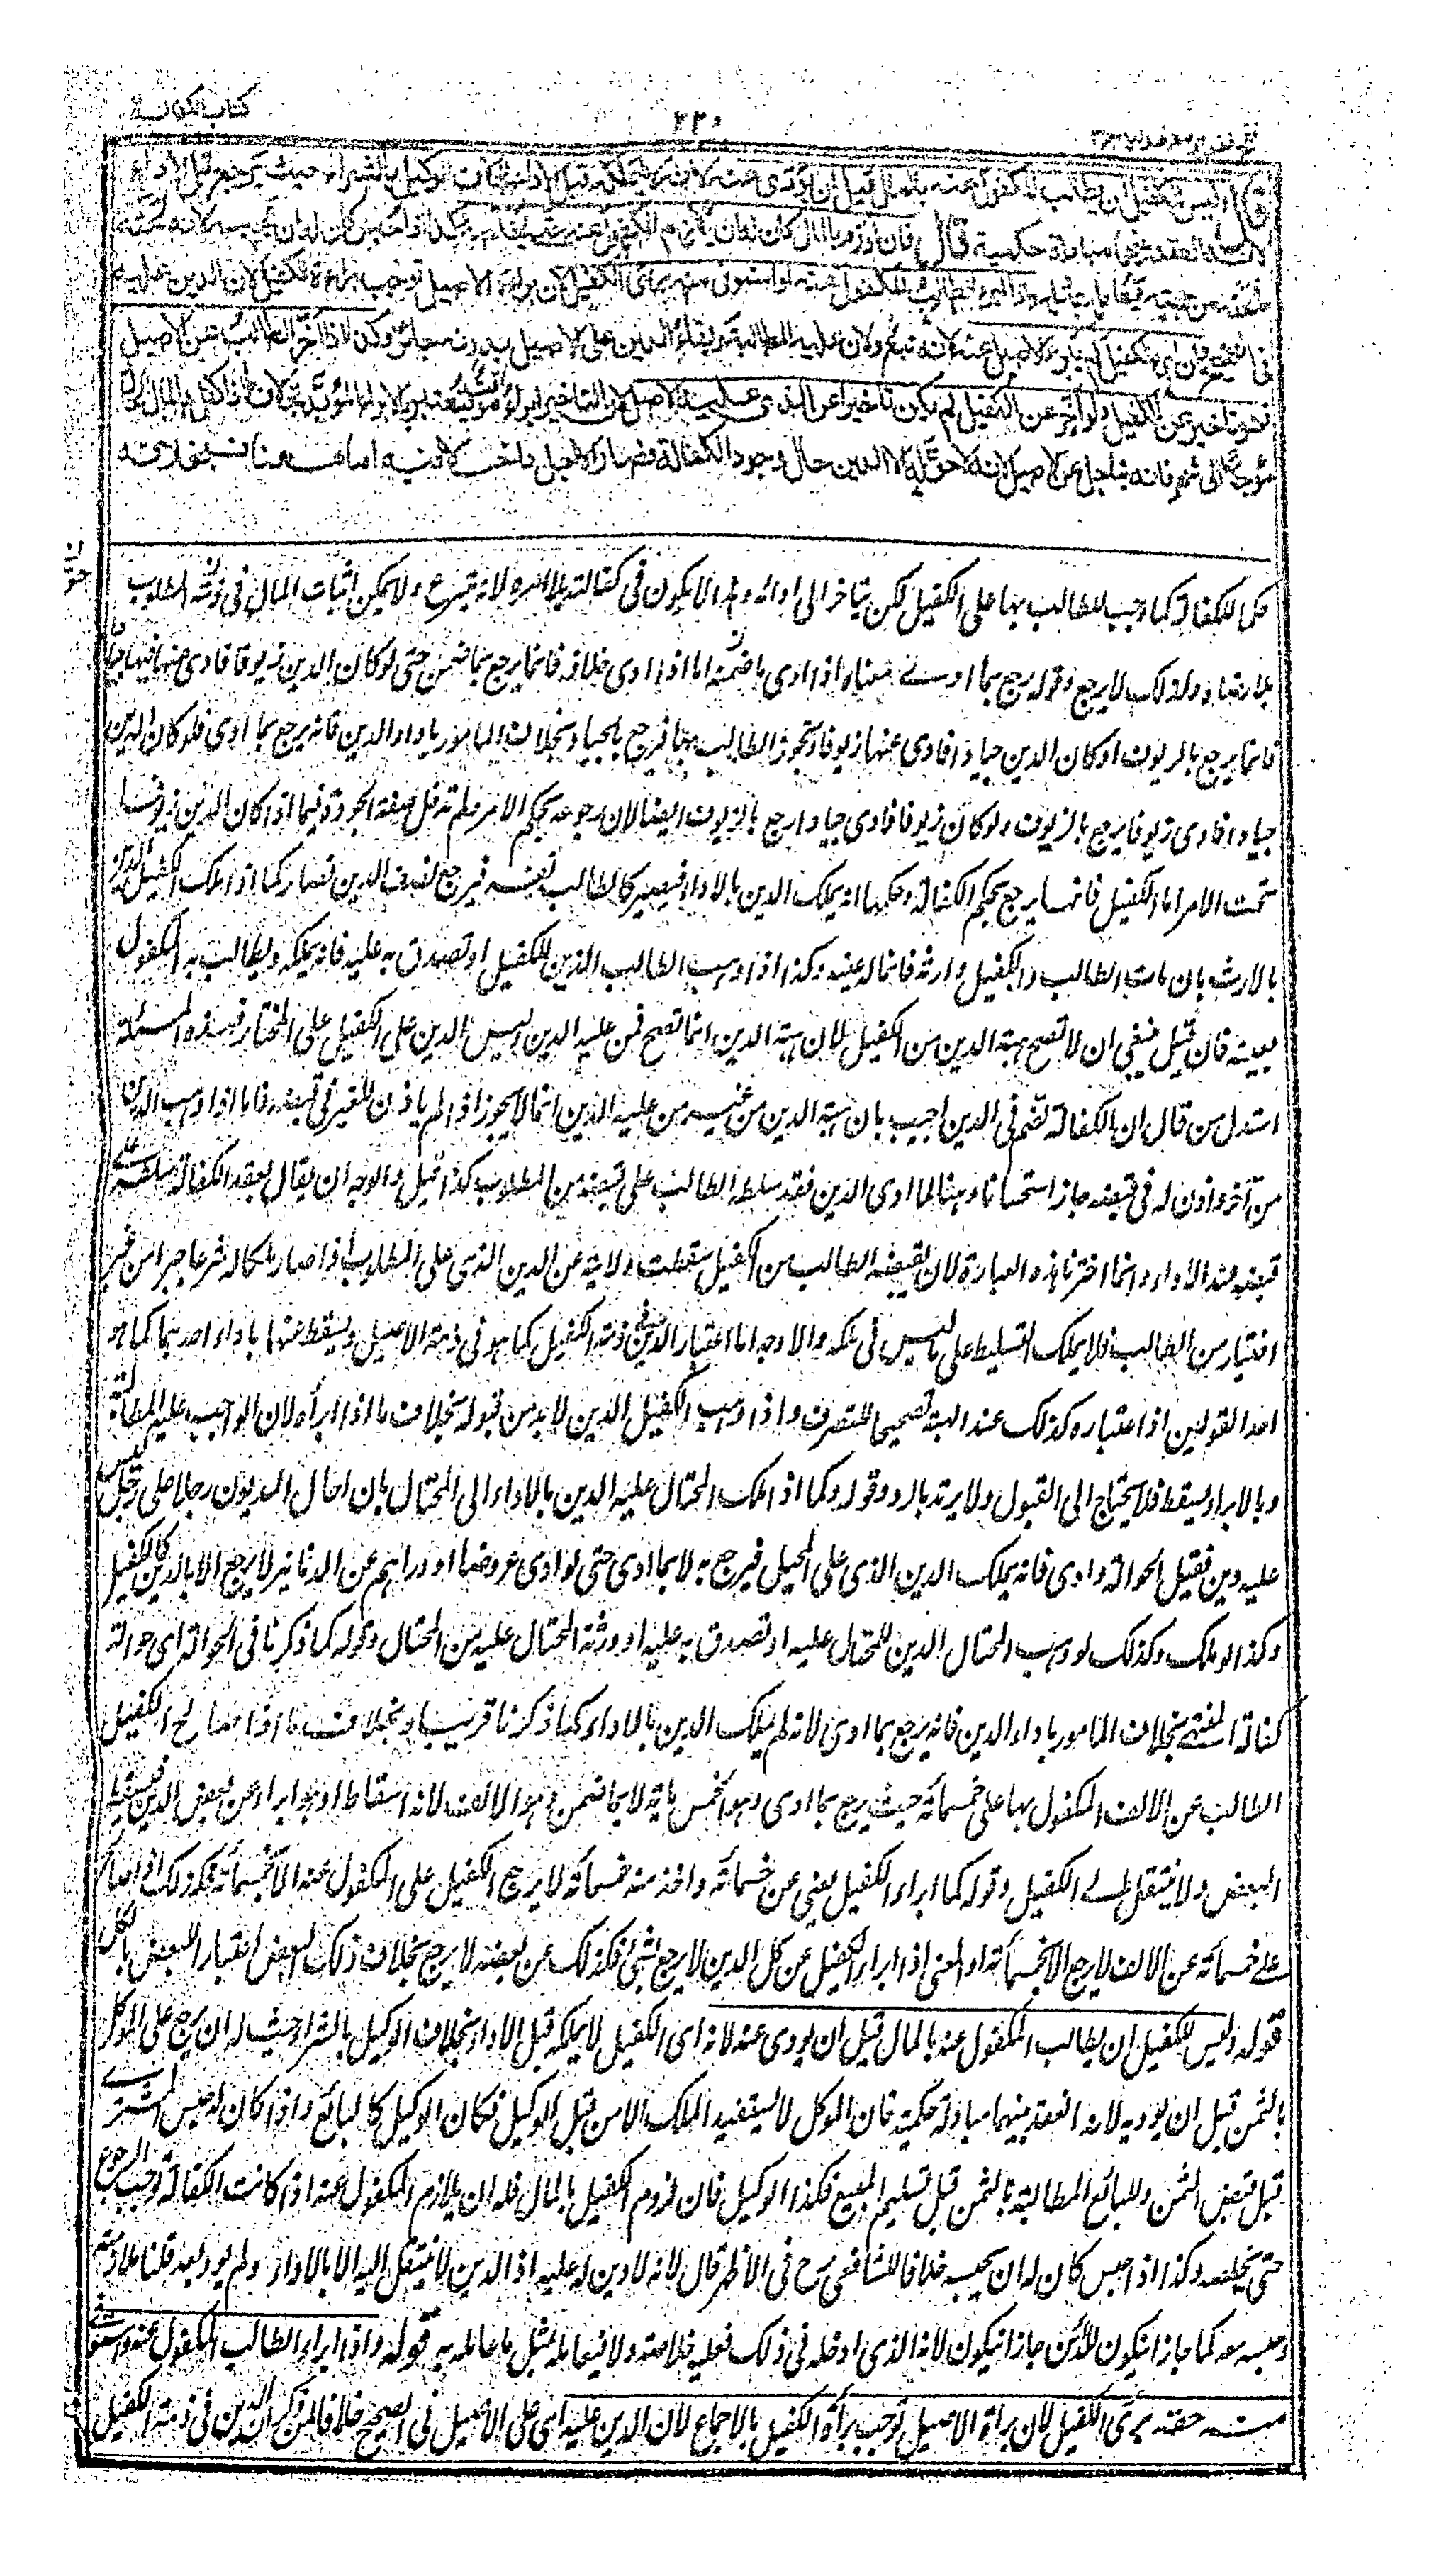 كتاب الكفالة
٢٣٠
قال وليس للكفيل ان يطالب المكفول عنه بالمال قبل ان يؤدي عنه لانه لا يملكه قبل الاداء بخلاف الوكيل بالشراء حيث يرجع قبل الاداء
لانه انعقد بينهما مبادلة حكمية قال فان لوزم بالمال كان له ان يلازم المكفول عنه حتى يخلصه وكذا اذا حبس كان له ان يحبسه لانه لحقه
ما لحقه من جهته واذا ابرء الطالب المكفول عنه او استوفى منه برئ الكفيل لان براءة الاصيل توجب براءة الكفيل لان الدين عليه
في الصحيح وان ابرء الكفيل لم يبرء الاصيل عنه لانه تبع ولان عليه المطالبة وبقاء الدين على الاصيل بدونه جائز وكذا اذا اخر الطالب عن الاصيل
فهو تاخير عن الكفيل ولو اخر عن الكفيل لم يكن تاخيرا عن الذي عليه الاصل لان التاخير ابراء موقت فيعتبر بالابراء المؤبد بخلاف ما اذا كفل بالمال الحال
مؤجلا الى شهر فانه يتاجل عن الاصيل لانه لا حق له الا الدين حال وجود الكفالة فصار الاجل داخلا فيه اما ههنا فبخلافه
حكما للكفالة كما وجب للطالب بها على الكفيل لكن يتاخر الى ادائه وهذا لا يكون في كفالته بلا امره لانه تبرع ولا يمكن اثبات المال في ذمة المطلوب
بلا رضاه ولذلك لا يرجع وقوله رجع بما ادى معناه اذا ادى ما ضمنه اما اذا ادى خلافه فانما يرجع بما ضمن حتى لو كان الدين زيوفا فادى عنها جيادا
فانما يرجع بالزيوف او كان الدين جيادا فادى عنها زيوفا وتجوز الطالب بها فيرجع بالجياد بخلاف المامور باداء الدين فانه يرجع بما ادى فلو كان الدين
جيادا فادى زيوفا يرجع بالزيوف ولو كان زيوفا فادى جيادا رجع بالزيوف ايضا لان رجوعه بحكم الامر ولم تدخل صفة الجودة فيما اذا كان الدين زيوفا
تحت الامر اما الكفيل فانما يرجع بحكم الكفالة وحكمها انه يملك الدين بالاداء فيصير كالطالب نفسه فيرجع لنفس الدين فصار كما اذا ملك الكفيل الدين
بالارث بان مات الطالب والكفيل وارثه فانما له عينه وكذا اذا وهب الطالب الدين للكفيل او تصدق به عليه فانه يملكه ويطالب به المكفول
بعينه فان قيل ينبغي ان لا تصح هبة الدين من الكفيل لان هبة الدين انما تصح ممن عليه الدين وليس الدين على الكفيل على المختار وبهذه المسئلة
استدل من قال ان الكفالة ضم في الدين اجيب بان هبة الدين من غير من عليه الدين انما لا يجوز اذا لم ياذن للغير في قبضه فاما اذا وهب الدين
من آخر واذن له في قبضه جاز استحسانا وهنا لما ادى الدين فقد سلطه الطالب على قبضه من المطلوب كذا قيل والوجه ان يقال بعقد الكفالة سلطه على
قبضه عند الاداء وانما اخترنا هذه العبارة لان بقبضه الطالب من الكفيل سقطت ولايته عن الدين الذي على المطلوب اذا صار ملكا له شرعا جبرا من غير
اختيار من الطالب فلا يملك التسليط على ما ليس في ملكه والاوجه اما اعتبار الدين في ذمة الكفيل كما هو في ذمة الاصيل ويسقط عنهما باداء احدهما كما هو
احد القولين اذ اعتباره كذلك عند الهبة تصحيحا للتصرف واذا وهب الكفيل الدين لا بد من قبوله بخلاف ما اذا ابرأه لان الواجب عليه المطالبة
وبالابراء يسقط فلا يحتاج الى القبول ولا يرتد بالرد وقوله وكما اذا ملك المحتال عليه الدين بالاداء الى المحتال بان احال المديون رجلا على رجل ليس
عليه دين فقبل الحوالة وادى فانه يملك الدين الذي على المحيل فيرجع به لا بما ادى حتى لو ادى عروضا او دراهم عن الدنانير لا يرجع الا بالدين كالكفيل
وكذا لو ملك وكذلك لو وهب المحتال الدين للمحتال عليه او تصدق به عليه او ورثه المحتال عليه من المحتال وقوله كما ذكرنا في الحوالة اي حوالة
كفاية المنتهى بخلاف المامور باداء الدين فانه يرجع بما ادى لانه لم يملك الدين بالاداء كما ذكرنا قريبا وبخلاف ما اذا صالح الكفيل
الطالب عن الالف المكفول بها على خمسمائة حيث يرجع بما ادى وهو الخمس مائة لا بما ضمن وهو الالف لانه اسقاط او هو ابراء عن بعض الدين فيسقط
البعض ولا ينتقل الى الكفيل وقوله كما ابراء الكفيل يعني عن خمسمائة واخذ منه خمسمائة لا يرجع الكفيل على المكفول عنه الا بخمسمائة فكذلك اذا صالح
على خمسمائة عن الالف لا يرجع الا بخمسمائة او المعنى اذا ابراء الكفيل عن كل الدين لا يرجع بشئ فكذلك عن بعضه لا يرجع بخلاف ذلك البعض اعتبارا للبعض بالكل
قوله وليس للكفيل ان يطالب المكفول عنه بالمال قبل ان يودى عنه لانه اى الكفيل لا يملكه قبل الاداء بخلاف الوكيل بالشراء حيث له ان يرجع على الموكل
بالثمن قبل ان يوديه لانه انعقد بينهما مبادلة حكمية فان الموكل لا يستفيد الملك الا من قبل الوكيل فكان الوكيل كالبائع واذا كان له حبس المشترى
قبل قبض الثمن وللبائع المطالبة بالثمن قبل تسليم المبيع فكذا الوكيل فان لزوم الكفيل بالمال فله ان يلازم المكفول عنه اذا كانت الكفالة توجب الرجوع
حتى يخلصه وكذا اذا حبس كان له ان يحبسه خلافا للشافعي رح في الاظهر قال لانه لا دين له عليه اذ الدين لا ينتقل اليه الا بالاداء ولم يود بعد قلنا ملازمته
وحبسه معه كما جاز ان يكون للدين جاز ان يكون لانه الذي ادخله في ذلك فعليه خلاصه ولا فيعامله بمثل ما عامله به قوله واذا ابراء الطالب المكفول عنه واستوفى
منه حقه برئ الكفيل لان براءة الاصيل توجب براءة الكفيل بالاجماع لان الدين عليه اى على الاصيل في الصحيح خلافا لمن ذكر ان الدين في ذمة الكفيل